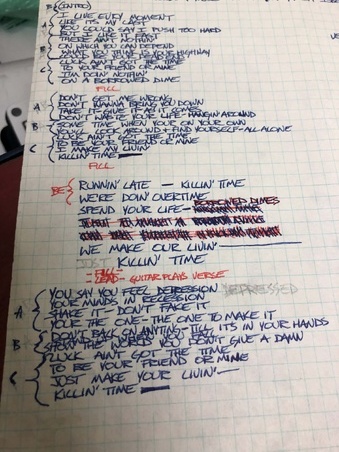 B (INTRO)
I LIVE EV'RY MOMENT
LIKE IT'S MY LAST
A YOU COULD SAY I PUSH TOO HARD
BUT I LIKE IT FAST
THERE AIN'T NOTHIN'
B ON WHICH YOU CAN DEPEND
WHAT YOU THINK IS YOUR HIGHWAY
LUCK AIN'T GOT THE TIME
C TO YOUR FRIEND OR MINE
I'M DOIN' NOTHIN'
ON A BORROWED DIME
FILL
DON'T GET ME WRONG
A DON'T WANNA BRING YOU DOWN
TAKE IT LIVE IT AS IT COMES
DON'T WASTE YOUR LIFE HANGIN' AROUND
B SOME TIME WHEN YOUR ON YOUR OWN
YOU'LL LOOK AROUND + FIND YOURSELF ALL ALONE
LUCK AIN'T GOT THE TIME
C TO BE YOUR FRIEND OR MINE
WE MAKE MY LIVIN'
KILLIN' TIME
FILL
RUNNIN' LATE — KILLIN' TIME
WE'RE DOIN' OVERTIME
SPEND YOUR LIFE — BORROWED DIMES
WE MAKE OUR LIVIN'
JUST KILLIN' TIME
- FILL -
LEAD - GUITAR PLAYS VERSE
YOU SAY YOU FEEL DEPRESSION DEPRESSED
YOUR MINDS IN RECESSION
A SHAKE IT — DON'T FAKE IT
YOUR THE ONE — THE ONE TO MAKE IT
DON'T BACK ON ANYTING - TILL IT'S IN YOUR HANDS
B SHOW THE WORLD YOU DON'T GIVE A DAMN
LUCK AIN'T GOT THE TIME
TO BE YOUR FRIEND OR MINE
C JUST MAKE YOUR LIVIN' —
KILLIN' TIME